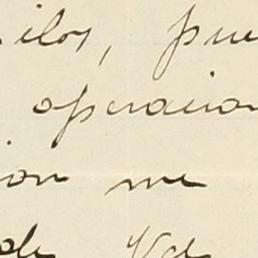 ilos, pue
operacion
ion me
de Vd